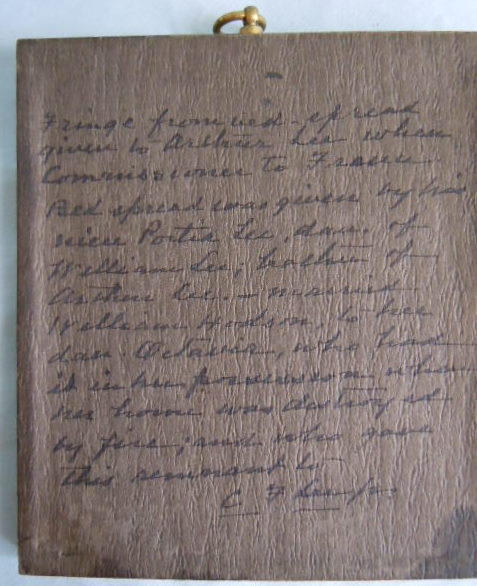 Fringe from bed-spread
given to Arthur Lee when
Commissioner to France.
Bed spread was given by his
niece Portia Lee, dau. of
William Lee; brother of
Arthur Lee. — married
William Hodson, to her
dau. Octavia, who had
it in her possession when
her home was destroyed
by fire; and who gave
this remnant to
C F Lee Jr.